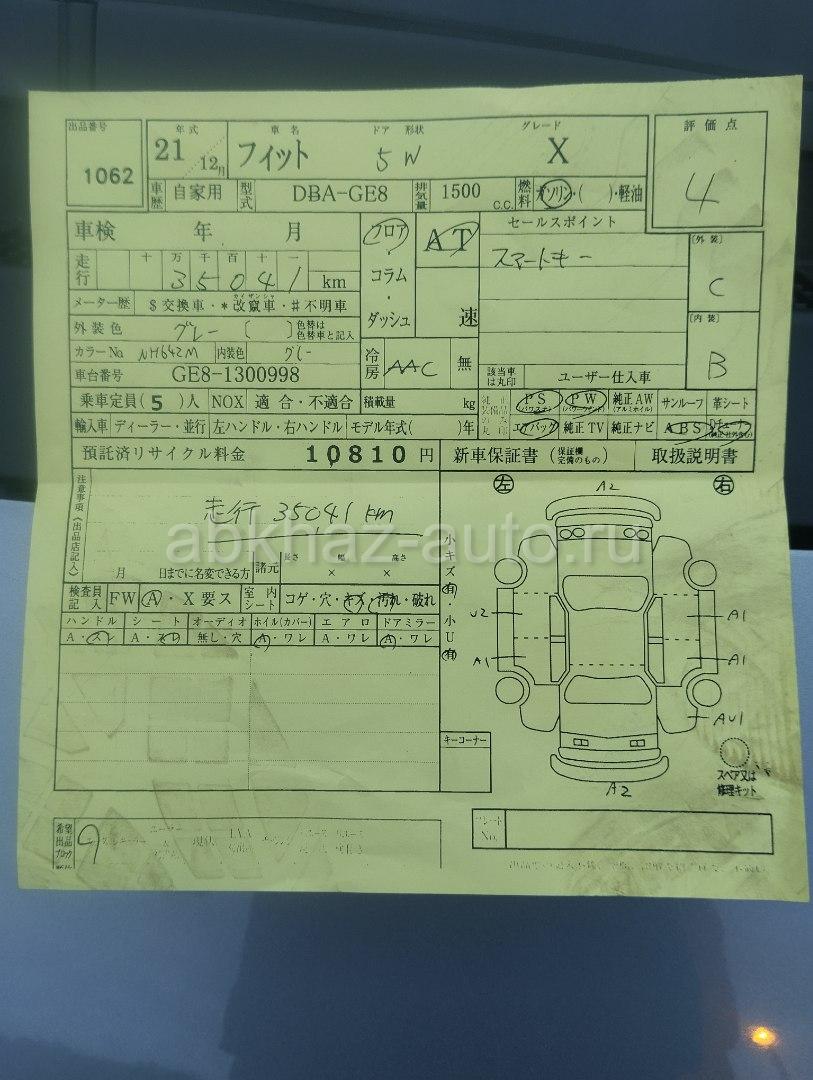 出品番号 年式 車名 ドア 形状 グレード 評価点
1062 21 12月 フィット 5W X 4
車歴 自家用 型式 DBA-GE8 排気量 1500 C.C. 燃料 ガソリン・( )・軽油
車検 年 月 フロア・コラム・ダッシュ AT 速 セールスポイント
スマートキー
[外装] C
走行 十 万 千 百 十 一
35041 km
メーター歴 $交換車・*改竄車・#不明車
カイザンシャ
外装色 グレー ( ) 色替は色替車と記入
カラーNo NH642M 内装色 グレー 冷房 AAC 無
[内装] B
車台番号 GE8-1300998 該当車は丸印 ユーザー仕入車
乗車定員(5)人 NOX 適合・不適合 積載量 kg
PS (パワステ) PW (パワーウインド) 純正AW (アルミホイル) サンルーフ 革シート
輸入車 ディーラー・並行 左ハンドル・右ハンドル モデル年式( )年 エアバック 純正TV 純正ナビ ABS
預託済リサイクル料金 10810円 新車保証書 (保証欄完備のもの) 取扱説明書
注意事項《出品店記入》
走行 35041km
abkhaz-auto.ru
月 日までに名変できる方 諸元 長さ × 幅 × 高さ
検査員記入 FW A・X要ス 室内シート コゲ・穴・キズ・汚れ・破れ
ハンドル シート オーディオ ホイル(カバー) エアロ ドアミラー
A・スレ A・スレ 無し・穴 A・ワレ A・ワレ A・ワレ
小キズ有・小U有
左 A2 右
U2 A1
A1 A1
AU1
A2
キーコーナー
スペア又は
修理キット
希望出品ブロック 9
プレートNo.